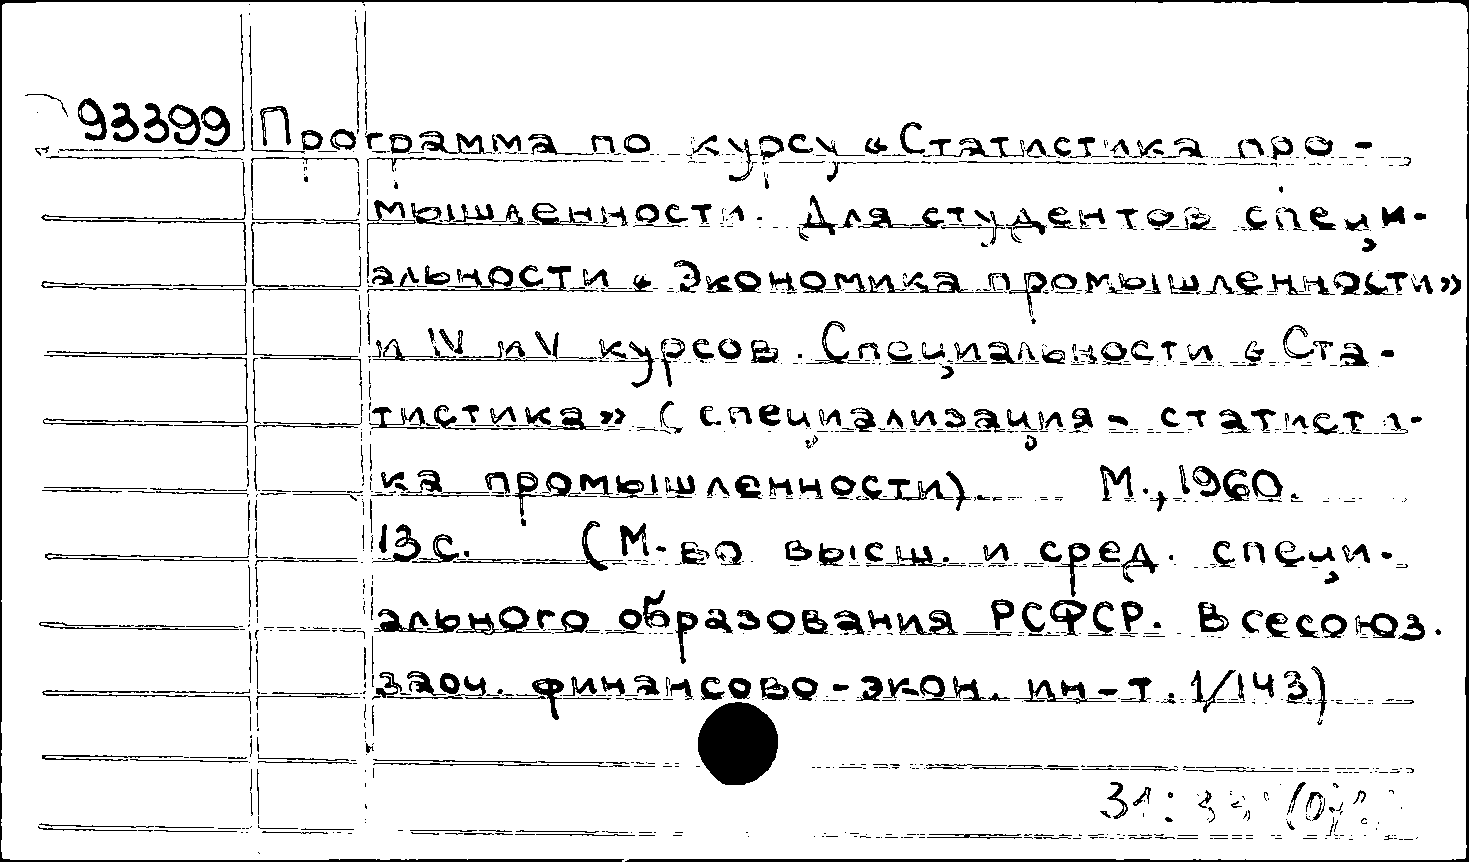 93399 Программа по курсу «Статистика про-
мышленности. Для студентов специ-
альности «Экономика промышленности»
и IV и V курсов. Специальности «Ста-
тистика» (специализация - статисти-
ка промышленности). М., 1960.
13 с. (М-во высш. и сред. специ-
ального образования РСФСР. Всесоюз.
заоч. финансово-экон. ин-т. 1/143)
31: